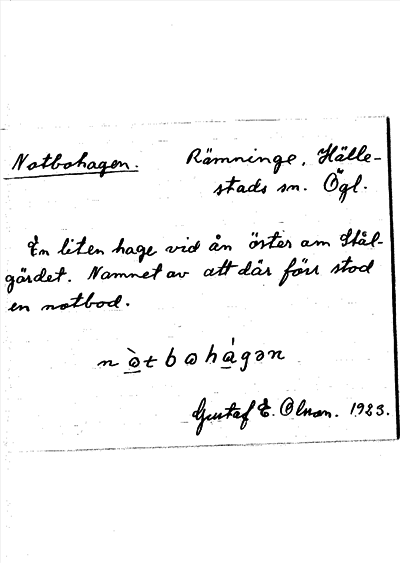 Notbohagen. Rämninge, Hälle-
stads sn. Ögl.
En liten hage vid ån öster om Stål-
gärdet. Namnet av att där förr stod
en notbod.
nòtbωhágən
Gustaf E. Olsson. 1923.